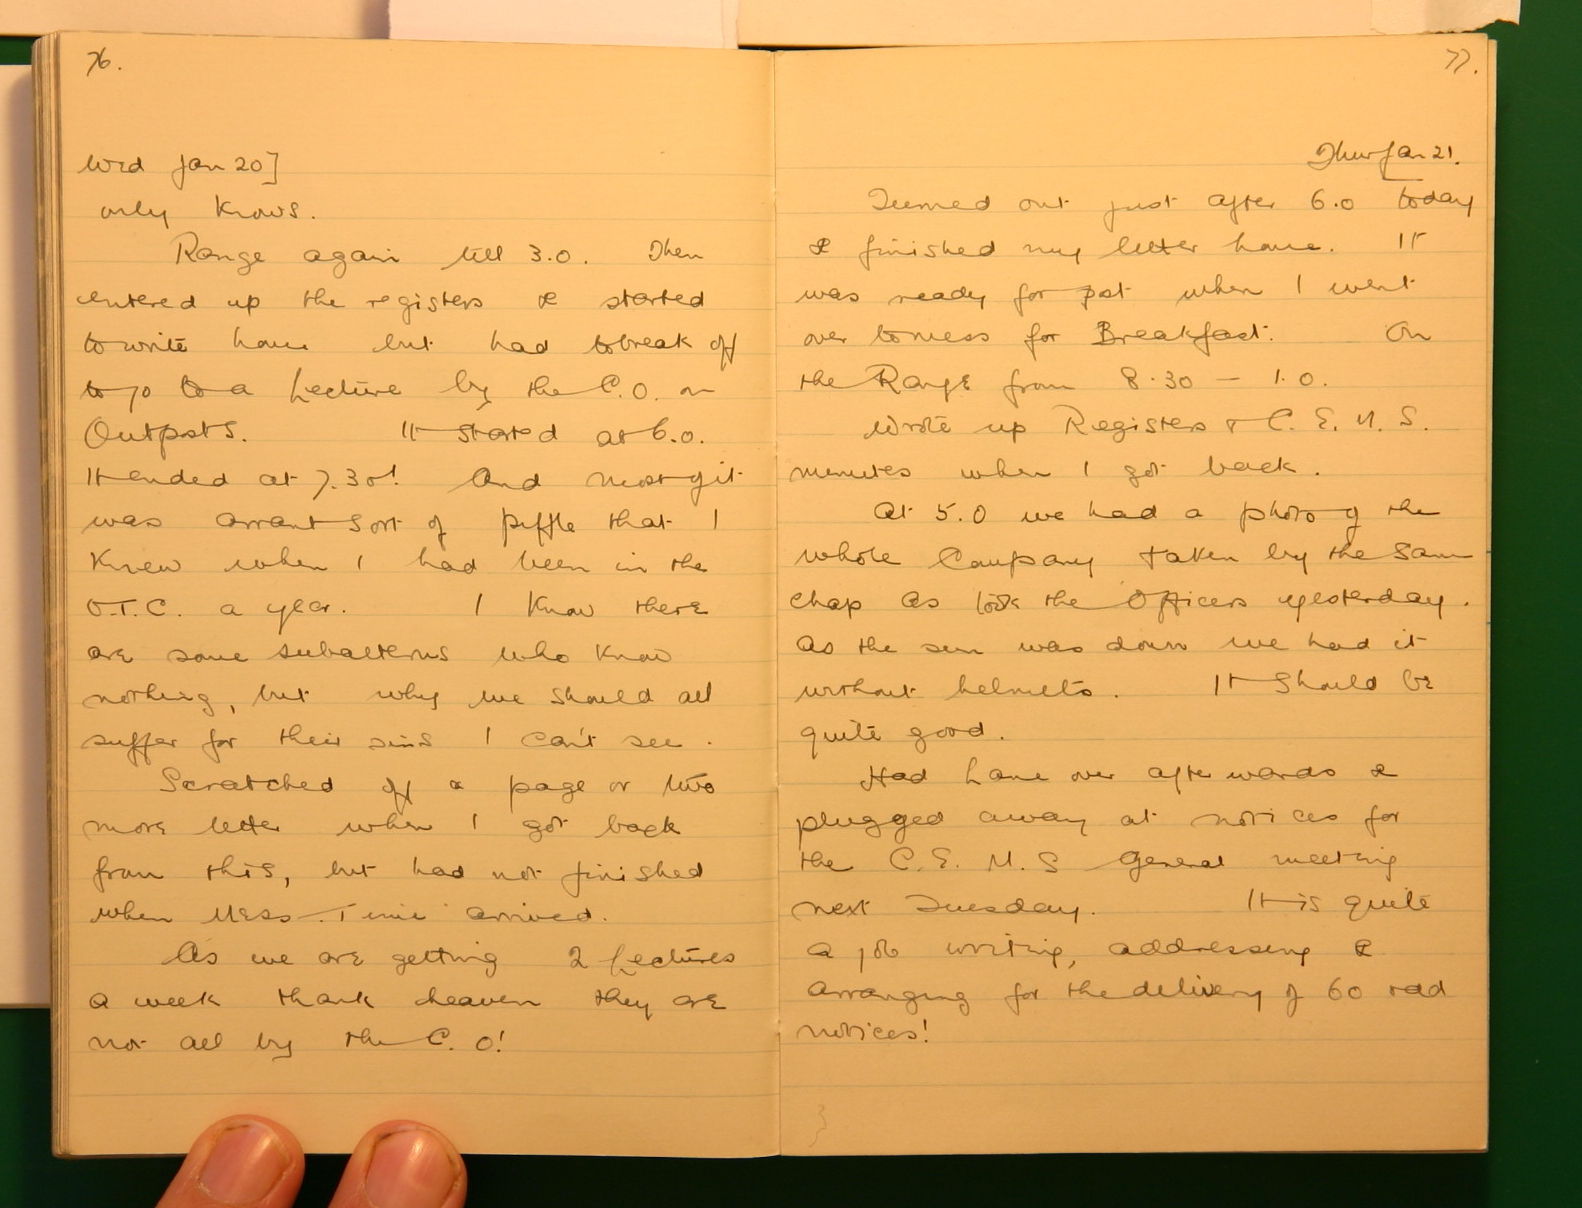 76.
Wed Jan 20]
only knows.
Range again till 3.0. Then
entered up the registers & started
to write home but had to break off
to go to a Lecture by the C.O. on
Outposts. It started at 6.0.
It ended at 7.30! And most of it
was arrant sort of piffle that I
knew when I had been in the
O.T.C. a year. I know there
are some subalterns who know
nothing, but why we should all
suffer for their sins I can't see.
Scratched off a page or two
more letter when I got back
from this, but had not finished
when Mess-Time arrived.
As we are getting 2 Lectures
a week thank heaven they are
not all by the C.O!
77.
Thur Jan 21.
Turned out just after 6.0 today
& finished my letter home. It
was ready for post when I went
over to mess for Breakfast. On
the Range from 8.30 – 1.0.
Wrote up Registers & C.E.M.S.
minutes when I got back.
At 5.0 we had a photo of the
whole Company taken by the same
chap as took the Officers yesterday.
As the sun was down we had it
without helmets. It should be
quite good.
Had Lane over afterwards &
plugged away at notices for
the C.E.M.S General meeting
next Tuesday. It is quite
a job writing, addressing &
arranging for the delivery of 60 odd
notices!